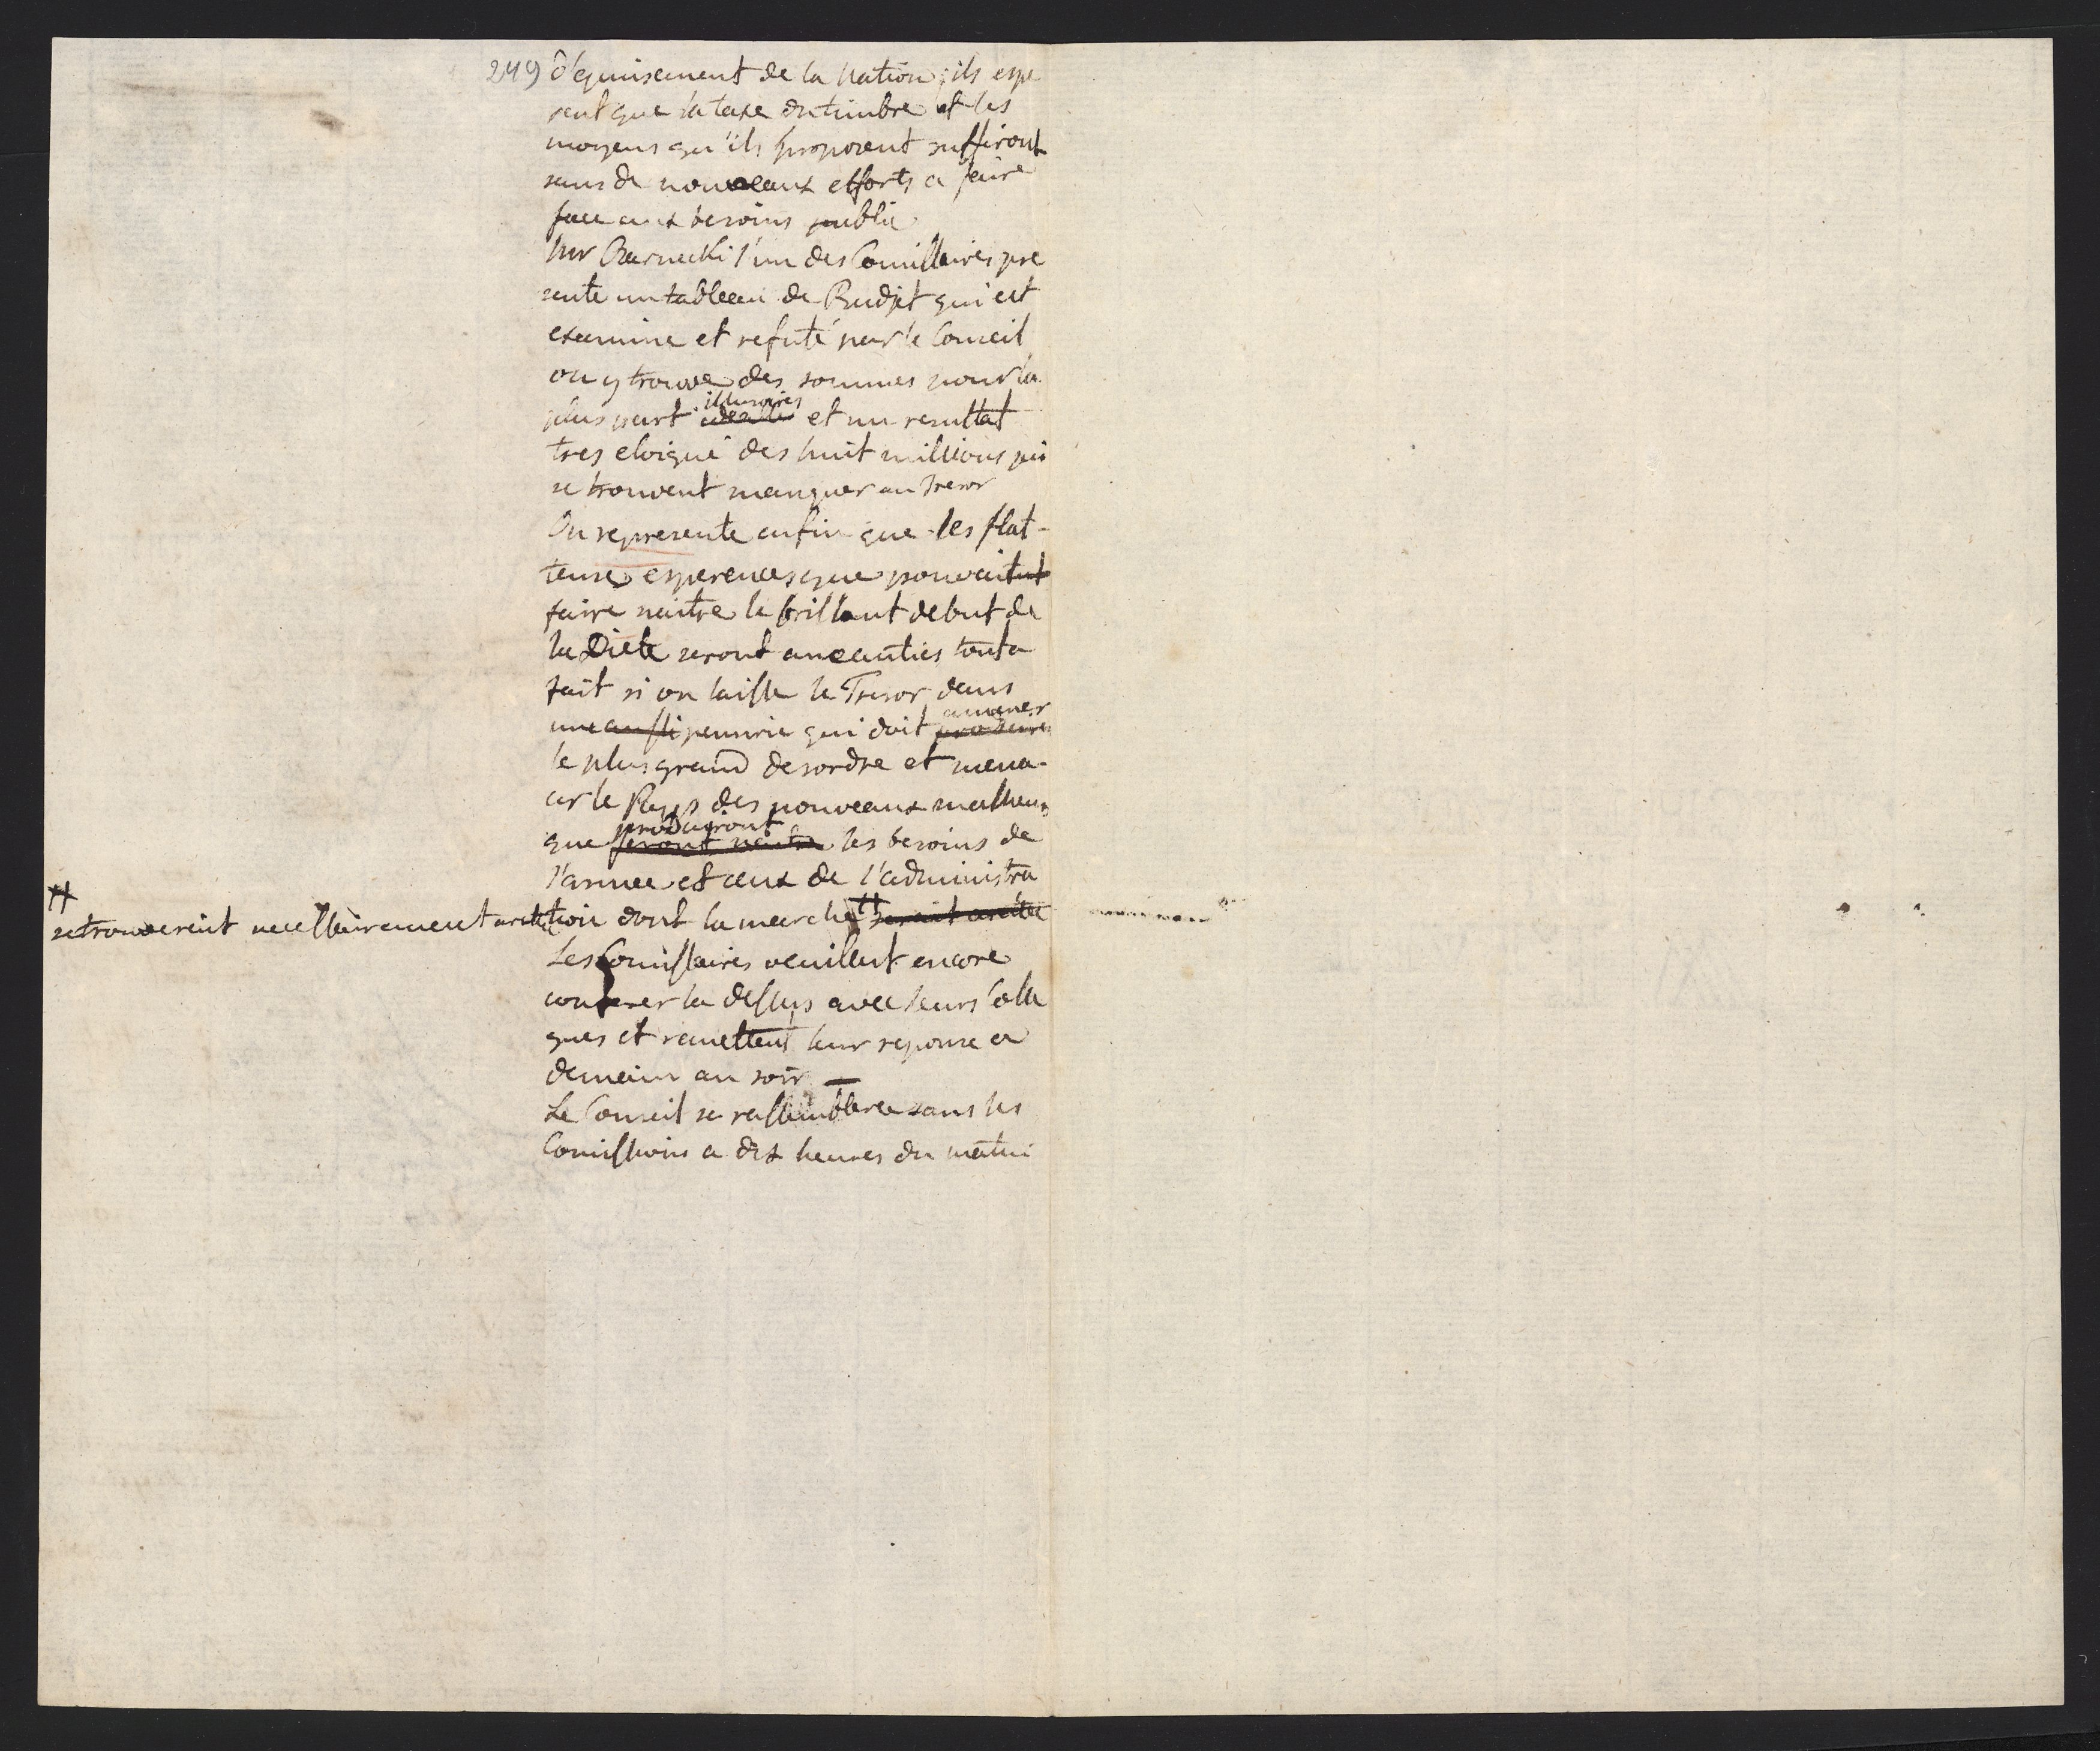 249) d'epuisement de la Nation; ils espe
rent que la taxe du timbre et les
moyens qu'ils proposent suffiront
sans de nouveaux efforts a faire
face aux besoins public
Mr Czarnecki l'un des Comissaires pre
sente un tableau de Budjet qui est
examine et refuté par le Conseil
on y trouve des sommes pour la
illusoires
plus part et un resultat
tres eloigné des huit millions qui
se trouvent manquer au Tresor
On represente enfin que les flat-
teuses esperences que pouvaitent
faire naitre le brillant debut de
la Diete seront aneanties tout a
fait si on laisse le Tresor dans
amener
une aussi penurie qui doit produire
le plus grand desordre et mena-
cer le Pays des nouveaux malheurs
produiront
que feront naitre les besoins de
l'armee et ceux de l'administra
tion dont la marche # serait aretée
#
se trouverait necessairement aretée
Les Comissaires veuillent encore
conferer la dessus avec leurs colle
gues et remettent leur reponse a
demain au soir —
Le Conseil se rassemblera sans les
Comissaires a dix heures du matin